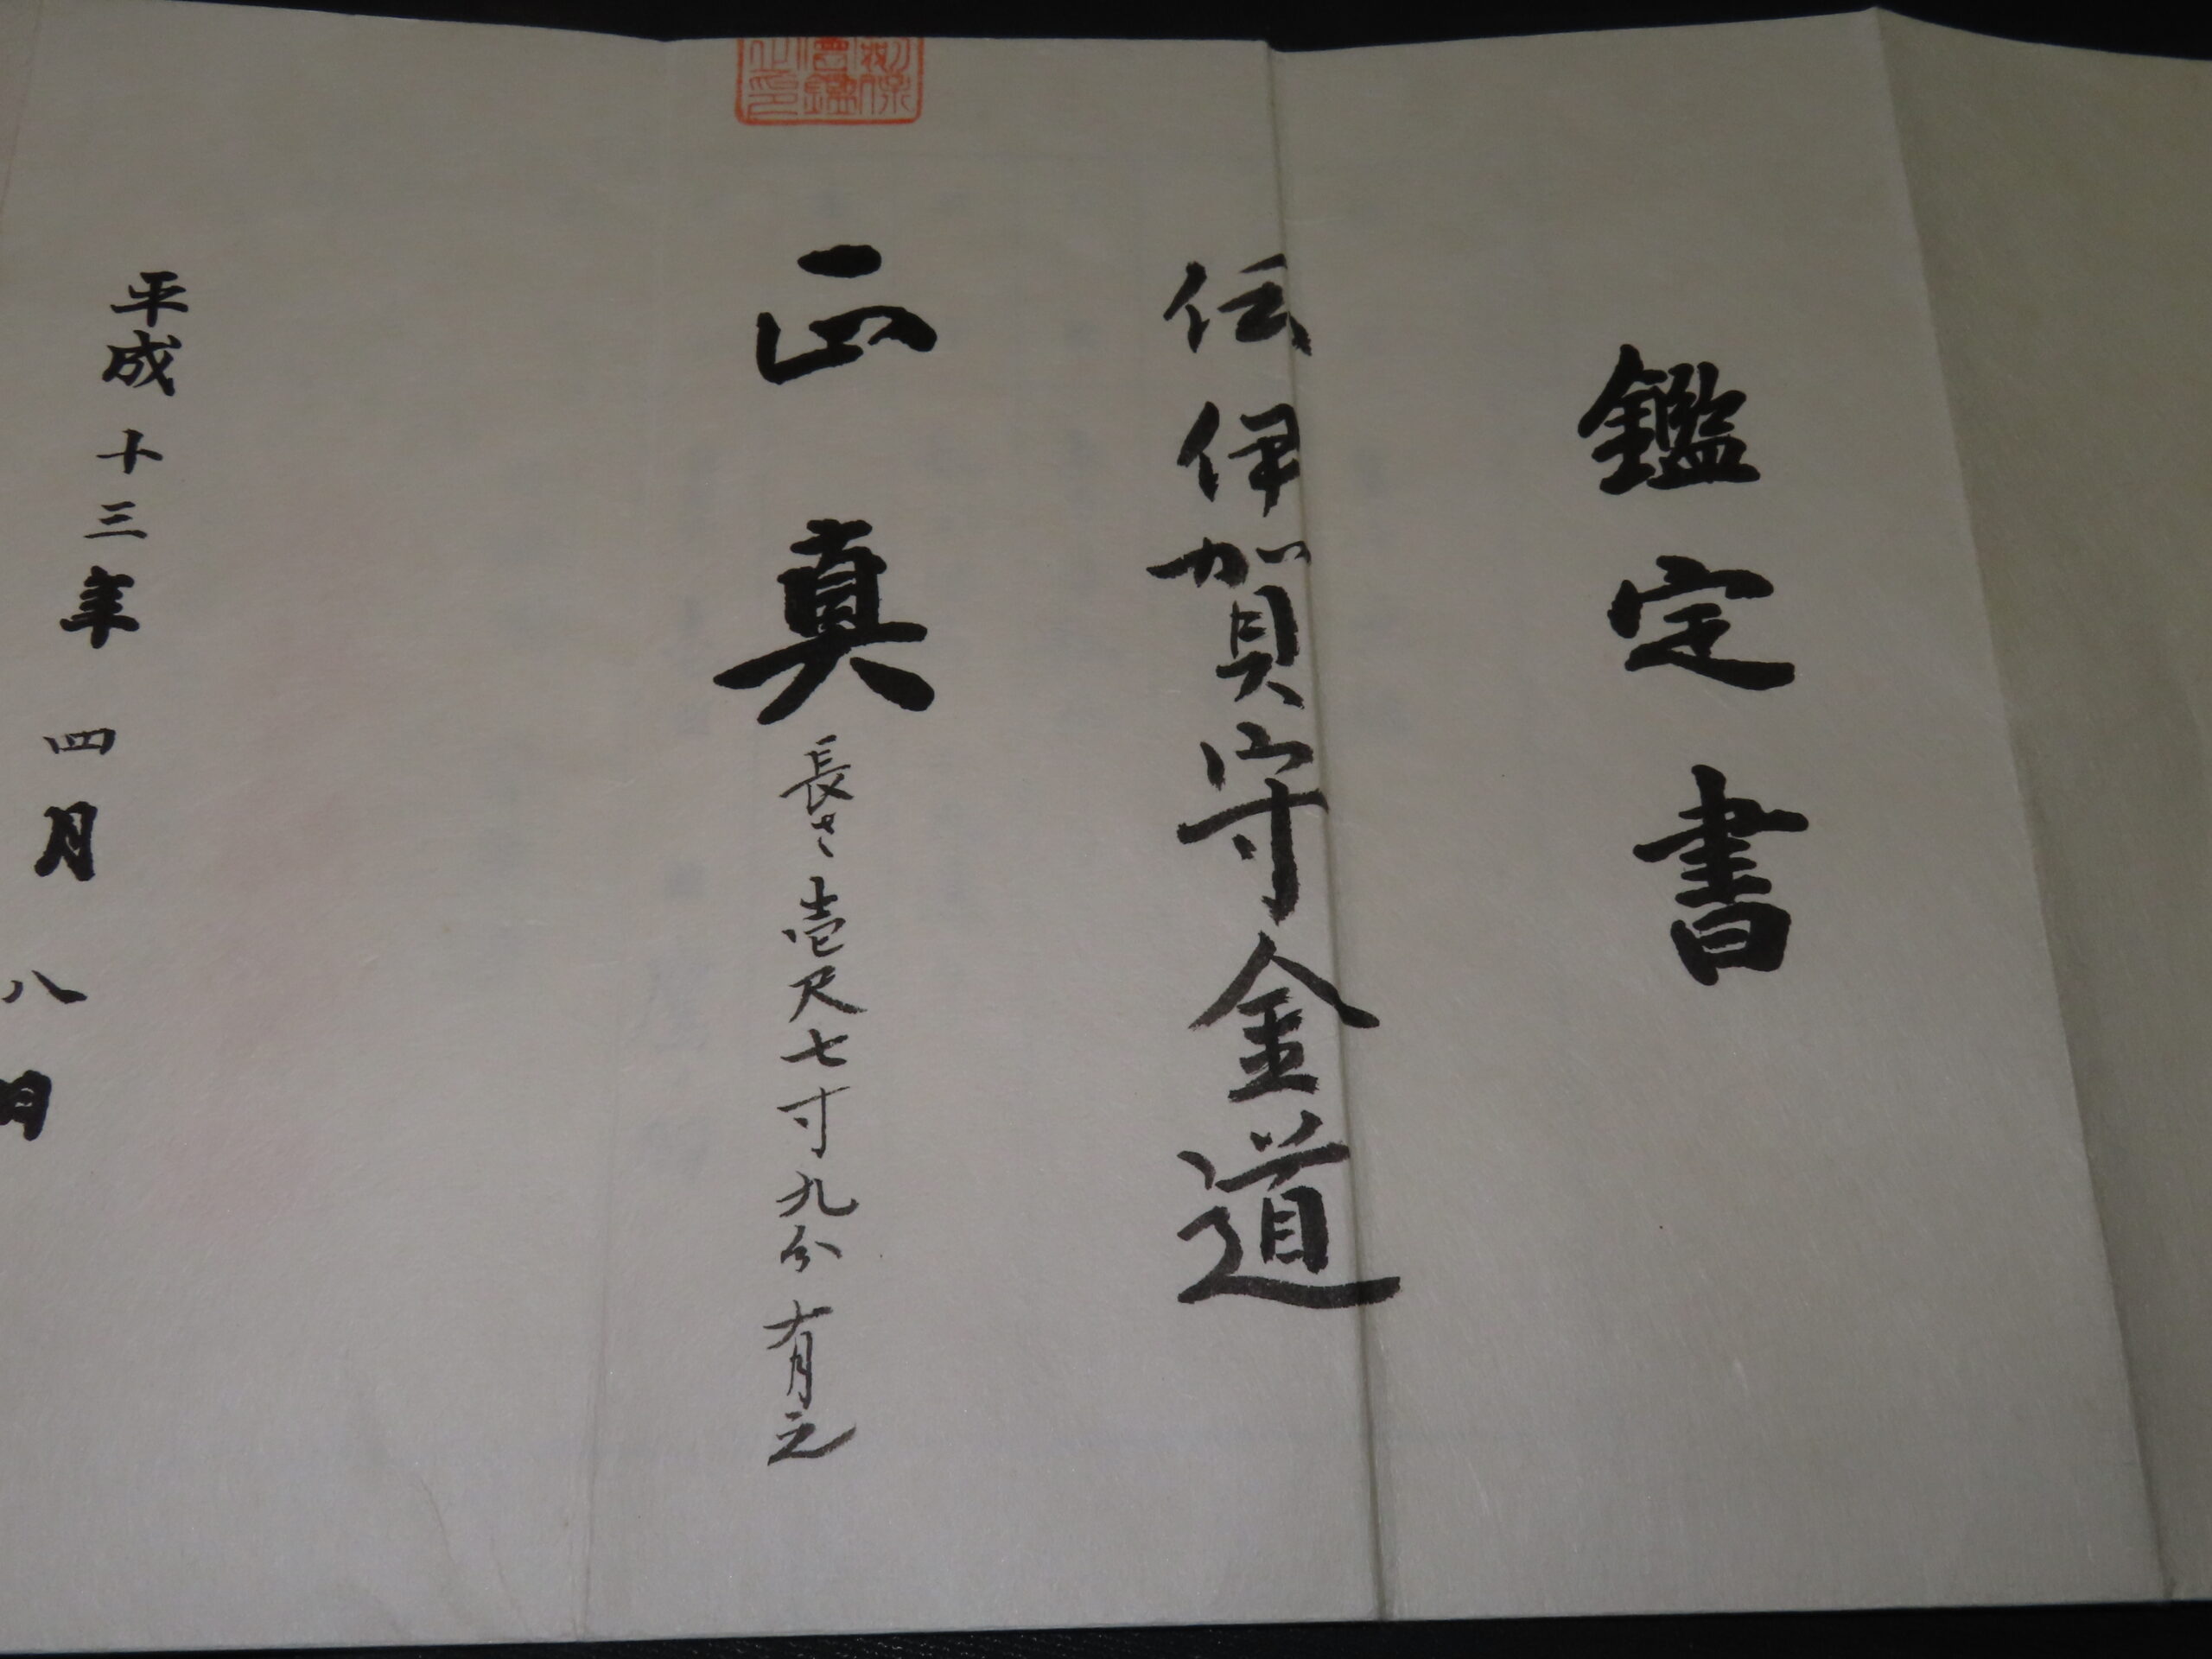 鑑定書
伝伊賀守金道
正真 長さ壱尺七寸九分有之
平成十三年四月八日